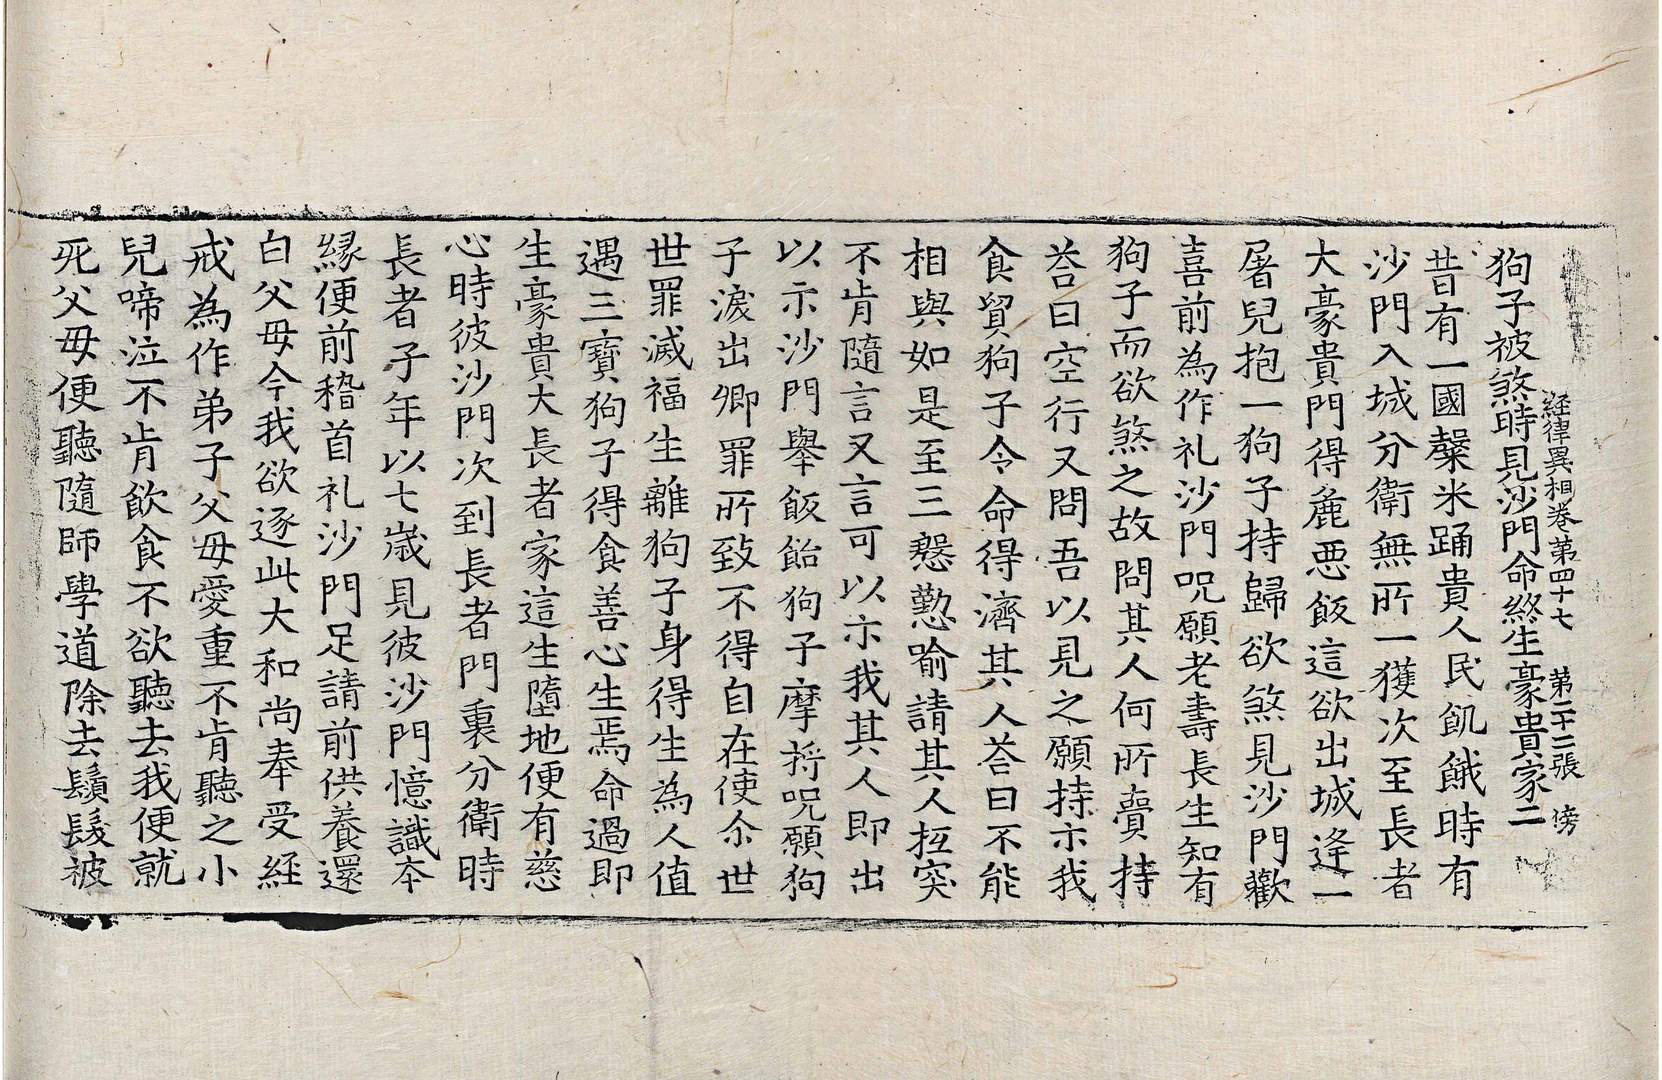 経律異相卷第四十七 第二十二張 傍
狗子被煞時見沙門命終生豪貴家二
昔有一國糳米踊貴人民飢餓時有
沙門入城分衛無所一獲次至長者
大豪貴門得麁惡飯這欲出城逢一
屠兒抱一狗子持歸欲煞見沙門歡
喜前為作礼沙門呪願老壽長生知有
狗子而欲煞之故問其人何所賣持
荅曰空行又問吾以見之願持示我
食貿狗子令命得濟其人荅曰不能
相與如是至三慇懃喻請其人抂突
不肯隨言又言可以示我其人即出
以示沙門舉飯飴狗子摩捋呪願狗
子淚出卿罪所致不得自在使尒世
世罪滅福生離狗子身得生為人值
遇三寶狗子得食善心生焉命過即
生豪貴大長者家這生墮地便有慈
心時彼沙門次到長者門裏分衛時
長者子年以七歲見彼沙門憶識本
緣便前稽首礼沙門足請前供養還
白父母今我欲逐此大和尚奉受經
戒為作弟子父母愛重不肯聽之小
兒啼泣不肯飲食不欲聽去我便就
死父母便聽隨師學道除去鬚髮被